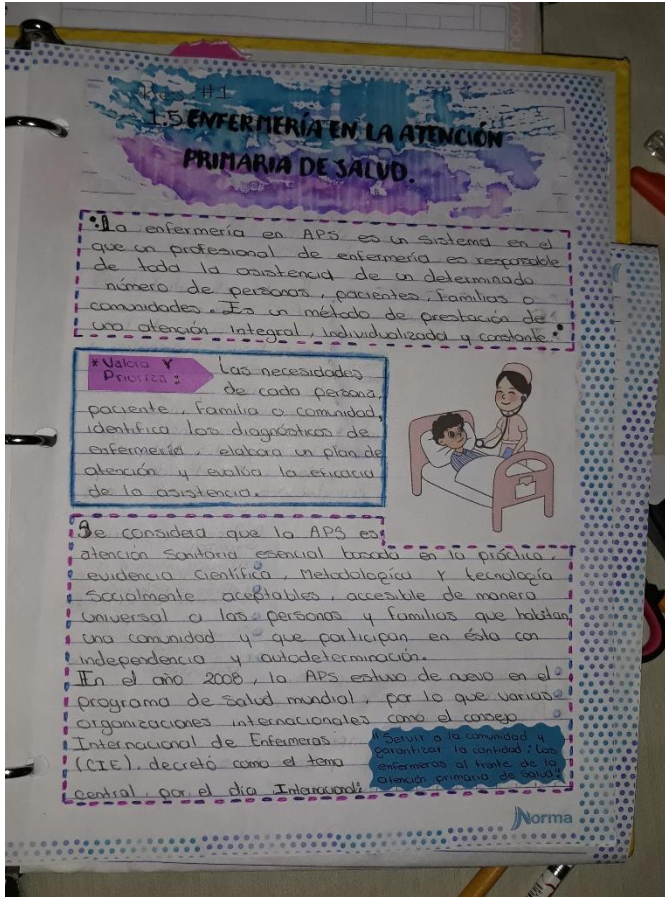 #1
1.5 ENFERMERÍA EN LA ATENCIÓN
PRIMARIA DE SALUD.
La enfermería en APS es un sistema en el
que un profesional de enfermería es responsable
de toda la asistencia de un determinado
número de personas, pacientes, familias o
comunidades. Es un método de prestación de
una atención integral, individualizada y constante.
* Valora Y
Prioriza:
Las necesidades
de cada persona,
paciente, familia o comunidad,
identifica los diagnósticos de
enfermería, elabora un plan de
atención y evalúa la eficacia
de la asistencia.
Se considera que la APS es
atención Sanitaria esencial basada en la práctica,
evidencia científica, Metodológica Y tecnología
Socialmente aceptables, accesible de manera
universal a las personas y familias que habitan
una comunidad y que participan en ésta con
independencia y autodeterminación.
En el año 2008, la APS estuvo de nuevo en el
programa de Salud mundial, por lo que varias
organizaciones internacionales como el consejo
Internacional de Enfermeras
(CIE), decretó como el tema
central, por el día Internacional:
"Servir a la comunidad y
garantizar la cantidad: Las
enfermeras al frente de la
atención primaria de Salud"
Norma